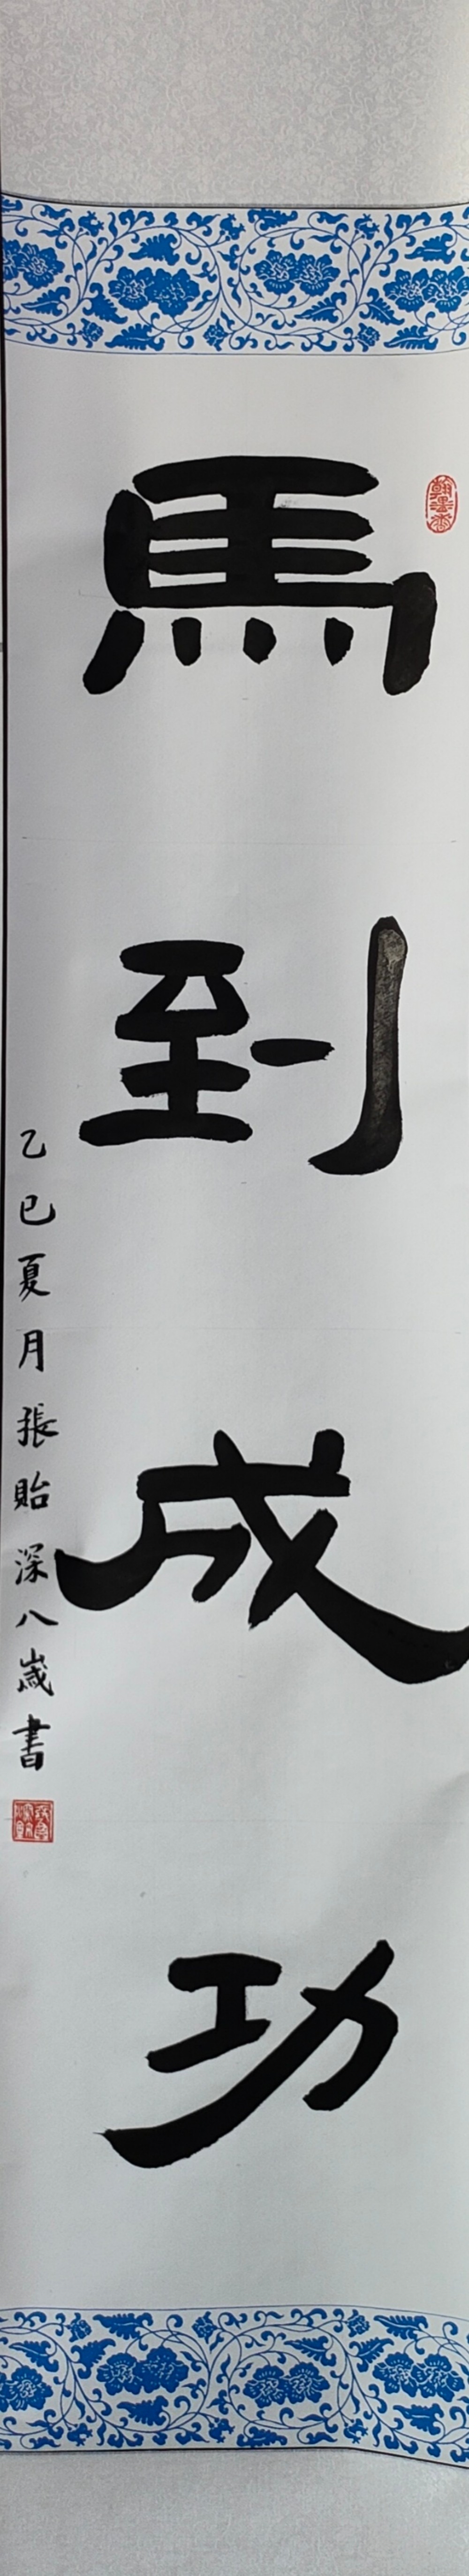 馬到成功
乙巳夏月張貽深八歲書
翰墨香